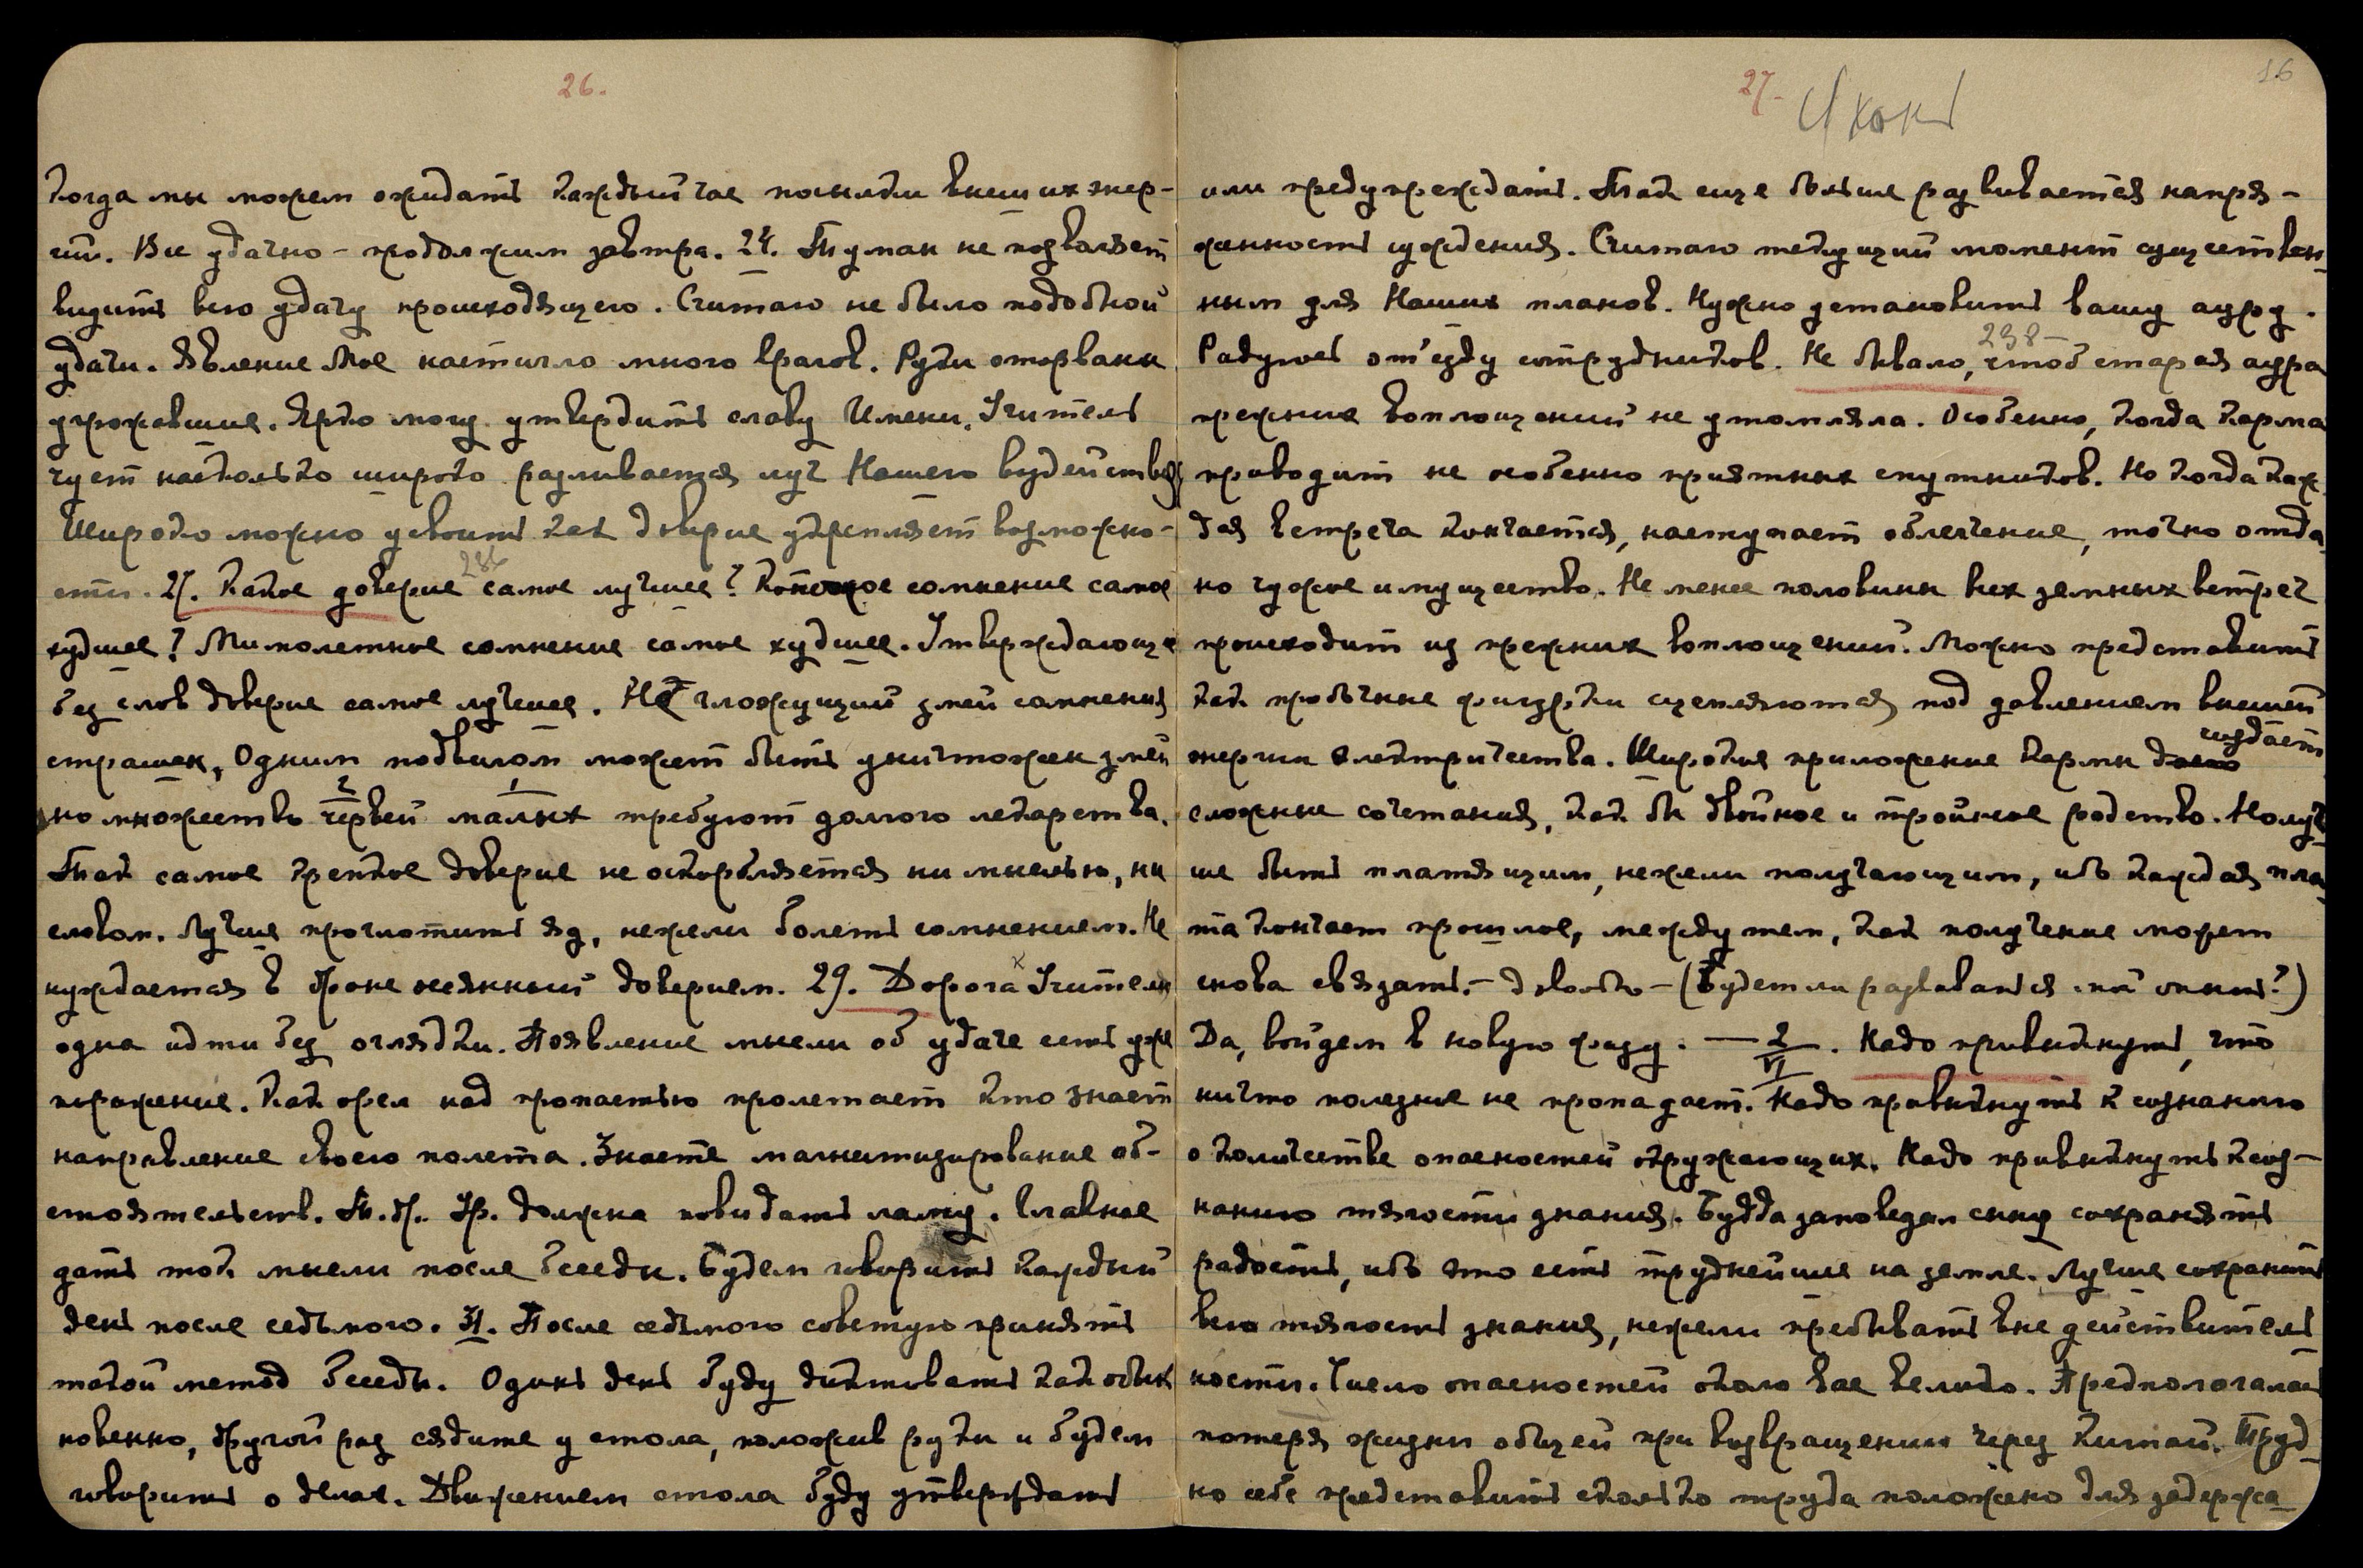 26.
когда мы можем ожидать каждый час посылки внешних энер-
гии. Все удачно – продолжим завтра. 24. Туман не позволяет
видить всю удачу происходящего. Считаю не было подобной
удачи. Явление Мое настигло много врагов. Руки оторваны
угрожавшие. Ярко могу утвердить славу Имени. Учитель
чует настолько широко разливается луч Нашего воздействия
Широко можно усвоить как доверие укрепляет возможно-
сти. 27. Какое доверие самое лучшее? Которое сомнение самое
236
худшее? Мимолетное сомнение самое худшее. Утверждающее
без слов доверие самое лучшее. Не гложущий змей сомнения
страшен, Одним подвигом может быть уничтожен змей
но множество червей малых требуют долгого лекарства.
Так самое крепкое доверие не оскорбляется ни мыслью, ни
словом. Лучше проглотить яд, нежели болеть сомнением. Не
нуждается в броне осяянный доверием. 29. Дорога Учителя
одна идти без оглядки. Появление мысли об удаче есть уже
поражение. Как орел над пропастью пролетает кто знает
направление своего полета. Знаете магнитизирование об-
стоятельств. Ур. должна повидать ламу. Главное
дать ток мысли после беседы. Будем говорить каждый
день после седьмого. 31. После седьмого советую принять
такой метод беседы. Один день буду диктовать как обык
новенно, другой раз сядите у стола, положив руки и будем
говорить о делах. Движением стола буду утверждать
27-
16
или предупреждать. Так еще больше развивается напря-
женность суждения. Считаю текущий момент существен
ным для Наших планов. Нужно установить вашу ауру.
Радуюсь от'езду сотрудников. Не бывало, чтоб старая аура
238-
прежних воплощений не утомляла. Особенно, когда карма
приводит не особенно приятных спутников. Но когда каж
дая встреча кончается, наступает облегчение, точно отда
но чужое имущество. Не менее половины всех земных встреч
происходит из прежних воплощений. Можно представить
как пробочные фигурки сцепляются под давлением внешней
энергии электричества. Широкое приложение кармы
создает
сложные сочетания, как бы двойное и тройное родство. Но луч
ше быть платящим, нежели получающим, ибо каждая пла
та кончает прошлое, между тем, как получение может
снова связать.– довольно – (Будет ли развиваться мысль?)
Да, войдем в новую фазу. — 2/VI. Надо привыкнуть, что
ничто полезное не пропадает. Надо привыкнуть к сознанию
о количестве опасностей окружающих. Надо привыкнуть к соз-
нанию тягости знания. Будда заповедал сыну сохранять
радость, ибо это есть труднейшее на земле. Лучше сохранить
всю тягость знания, нежели пребывать вне действитель
ности. Число опасностей около вас велико. Предполагалась
потеря жизни общей при возвращении через Китай. Труд
но себе представить сколько труда положено для задержа